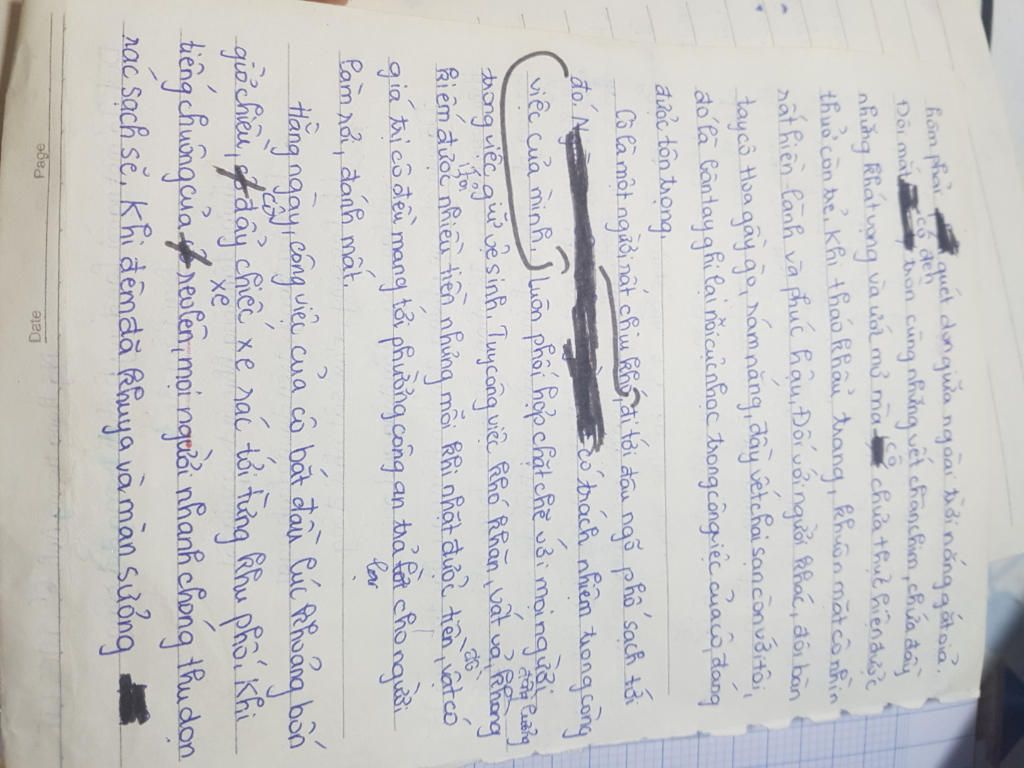 Date
Page
hôm phải quét dọn giữa ngoài trời nắng gắt oi ả.
Đôi mắt cô đen tròn cùng những vết chân chim, chứa đầy
những khát vọng và ước mơ mà cô chưa thực hiện được
thuở còn trẻ. Khi tháo khẩu trang, khuôn mặt cô nhìn
rất hiền lành và phúc hậu. Đối với người khác, đôi bàn
tay cô Hoa gầy gò, rám nắng, đầy vết chai sạn còn với tôi,
đó là bàn tay ghi lại nỗi cực nhọc trong công việc của cô, đang
được tôn trọng.
Cô là một người rất chịu khó, đi tới đâu ngõ phố sạch tới
đó. có trách nhiệm trong công
việc của mình, luôn phối hợp chặt chẽ với mọi người
trong việc giữ vệ sinh. Tuy công việc khó khăn, vất vả, đồng lương không
kiếm được nhiều tiền nhưng mỗi khi nhặt được tiền, đồ vật có
giá trị cô đều mang tới phường công an trả lại cho người
làm rơi, đánh mất.
Hằng ngày, công việc của cô bắt đầu lúc khoảng bốn
giờ chiều, cô đẩy chiếc xe rác tới từng khu phố. Khi
tiếng chuông của xe reo lên, mọi người nhanh chóng thu dọn
rác sạch sẽ. Khi đêm đã khuya và màn sương